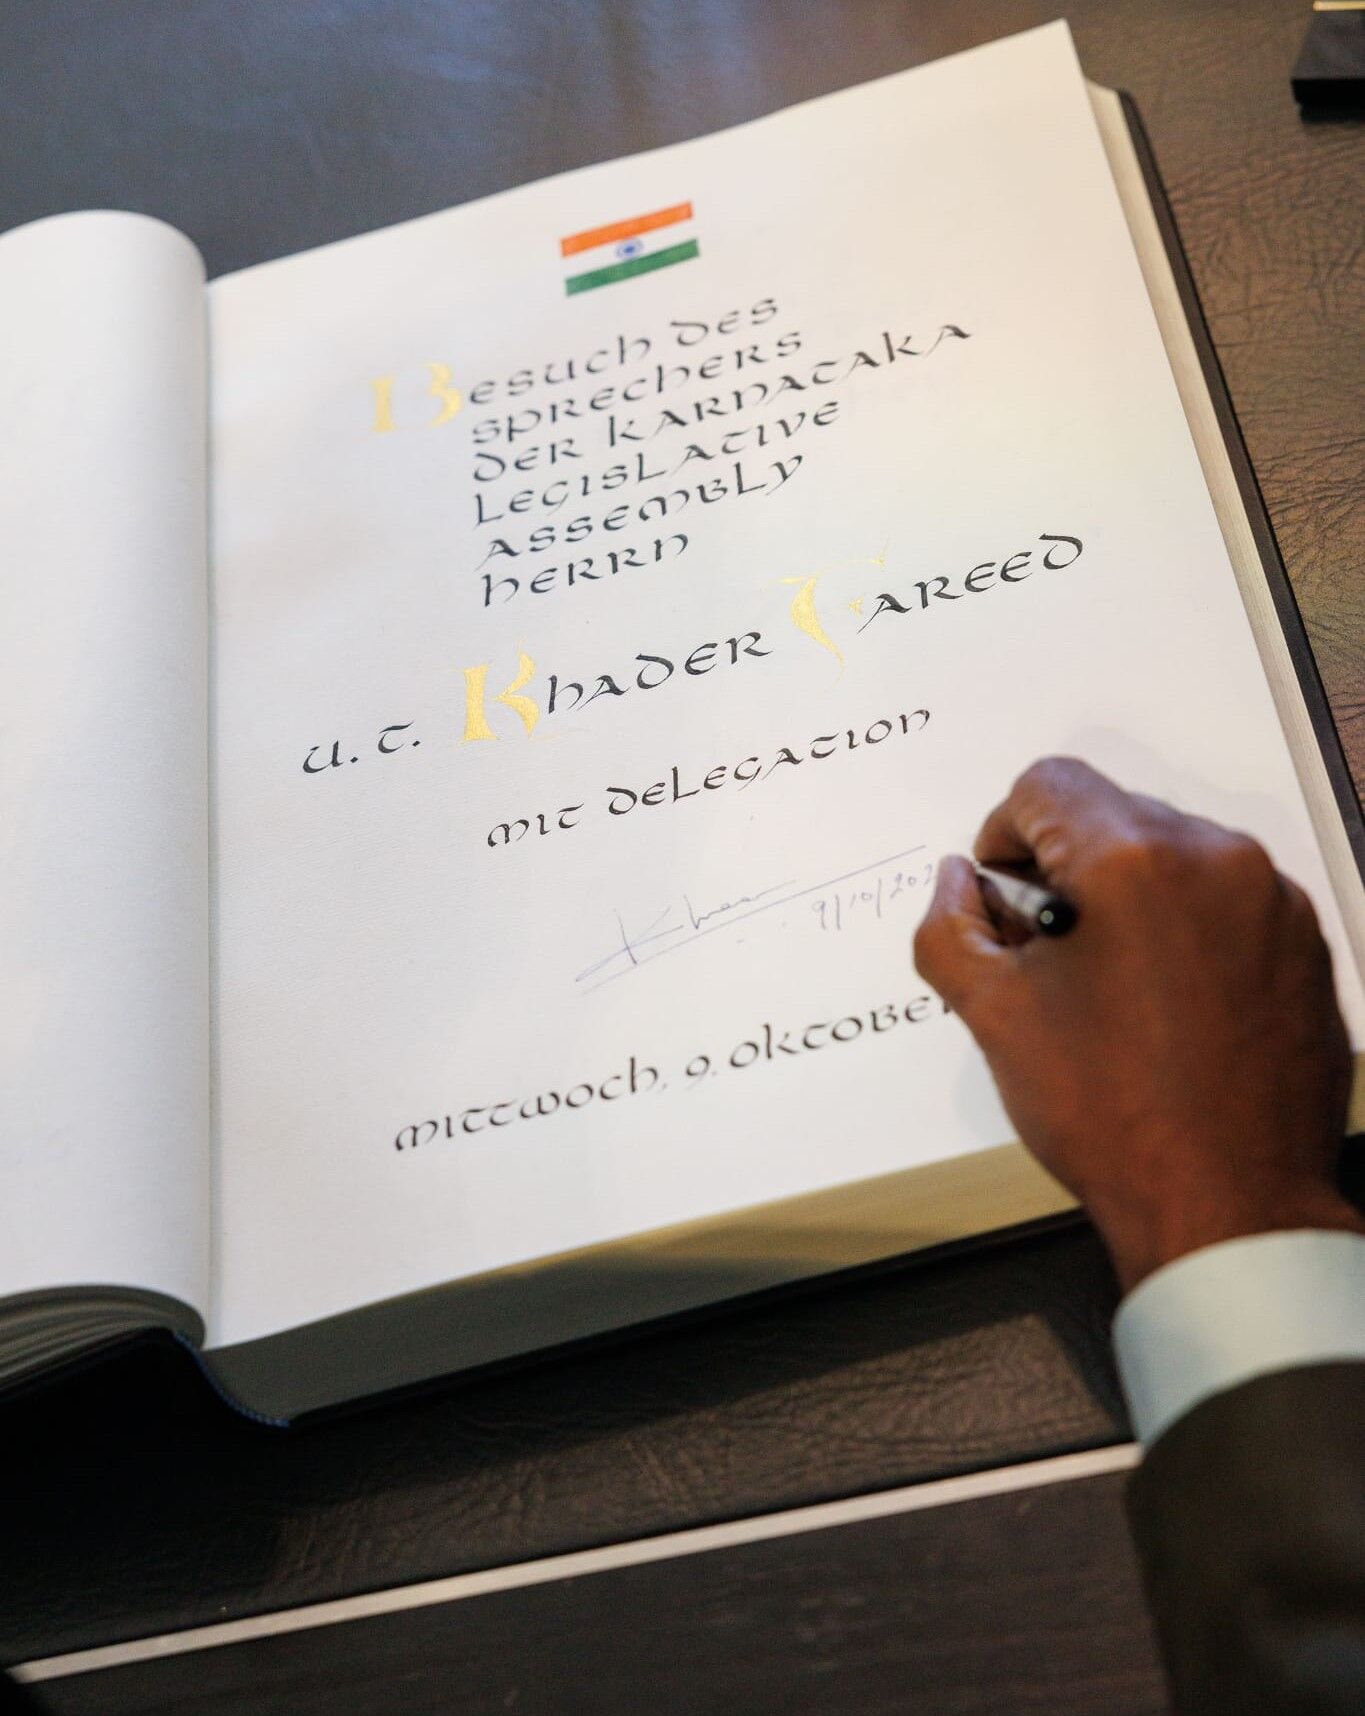 Besuch des
Sprechers
der Karnataka
Legislative
Assembly
Herrn
U. T. Khader Fareed
mit Delegation
9/10/202
Mittwoch, 9. Oktober